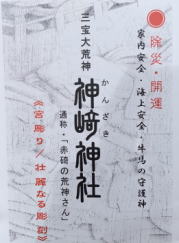 ●除災・開運
家内安全・海上安全・牛馬の守護神
三宝大荒神
神﨑神社
かんざき
通称・「赤碕の荒神さん」
《宮彫り/壮麗なる彫刻》